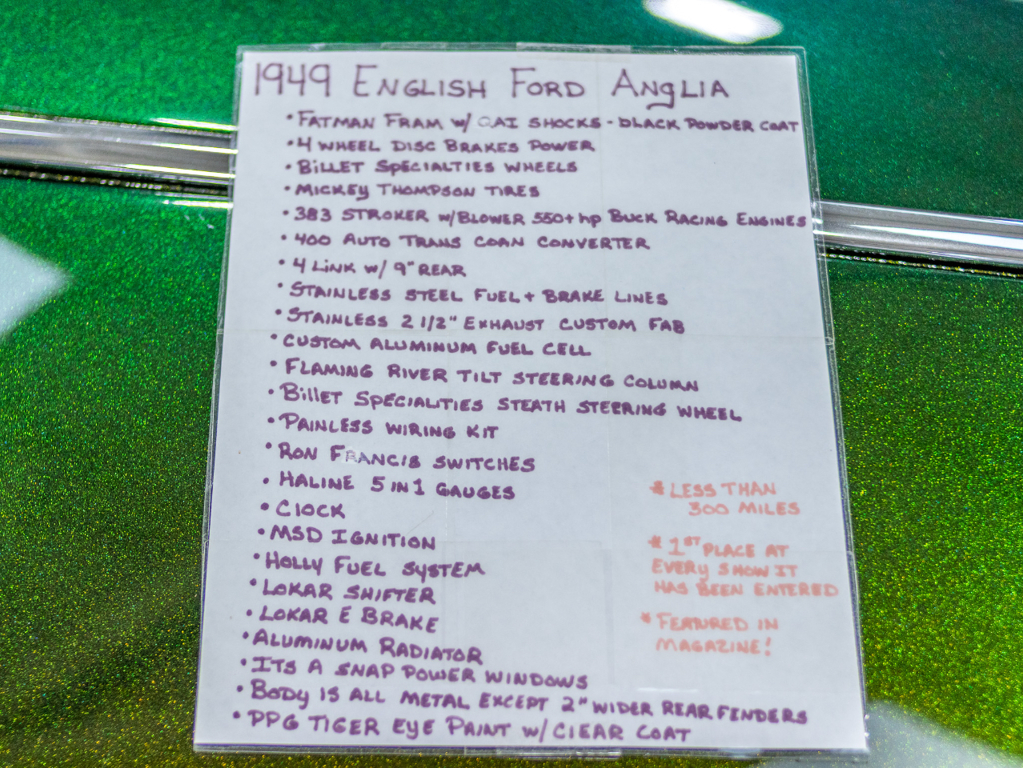 1949 English Ford Anglia
• Fatman Fram w/ QAI Shocks - Black Powder Coat
• 4 Wheel Disc Brakes Power
• Billet Specialties Wheels
• Mickey Thompson Tires
• 383 Stroker w/Blower 550+ hp Buck Racing Engines
• 400 Auto Trans Coan Converter
• 4 Link w/ 9" Rear
• Stainless Steel Fuel + Brake Lines
• Stainless 2 1/2" Exhaust Custom Fab
• Custom Aluminum Fuel Cell
• Flaming River Tilt Steering Column
• Billet Specialities Steath Steering Wheel
• Painless Wiring Kit
• Ron Francis Switches
• Haline 5 in 1 Gauges
• Clock
• MSD Ignition
• Holly Fuel System
• Lokar Shifter
• Lokar E Brake
• Aluminum Radiator
• Its A Snap Power Windows
• Body is all Metal Except 2" Wider Rear Fenders
• PPG Tiger Eye Paint w/ Clear Coat
* Less Than
300 Miles
* 1st Place at
Every Show It
Has Been Entered
* Featured in
Magazine!